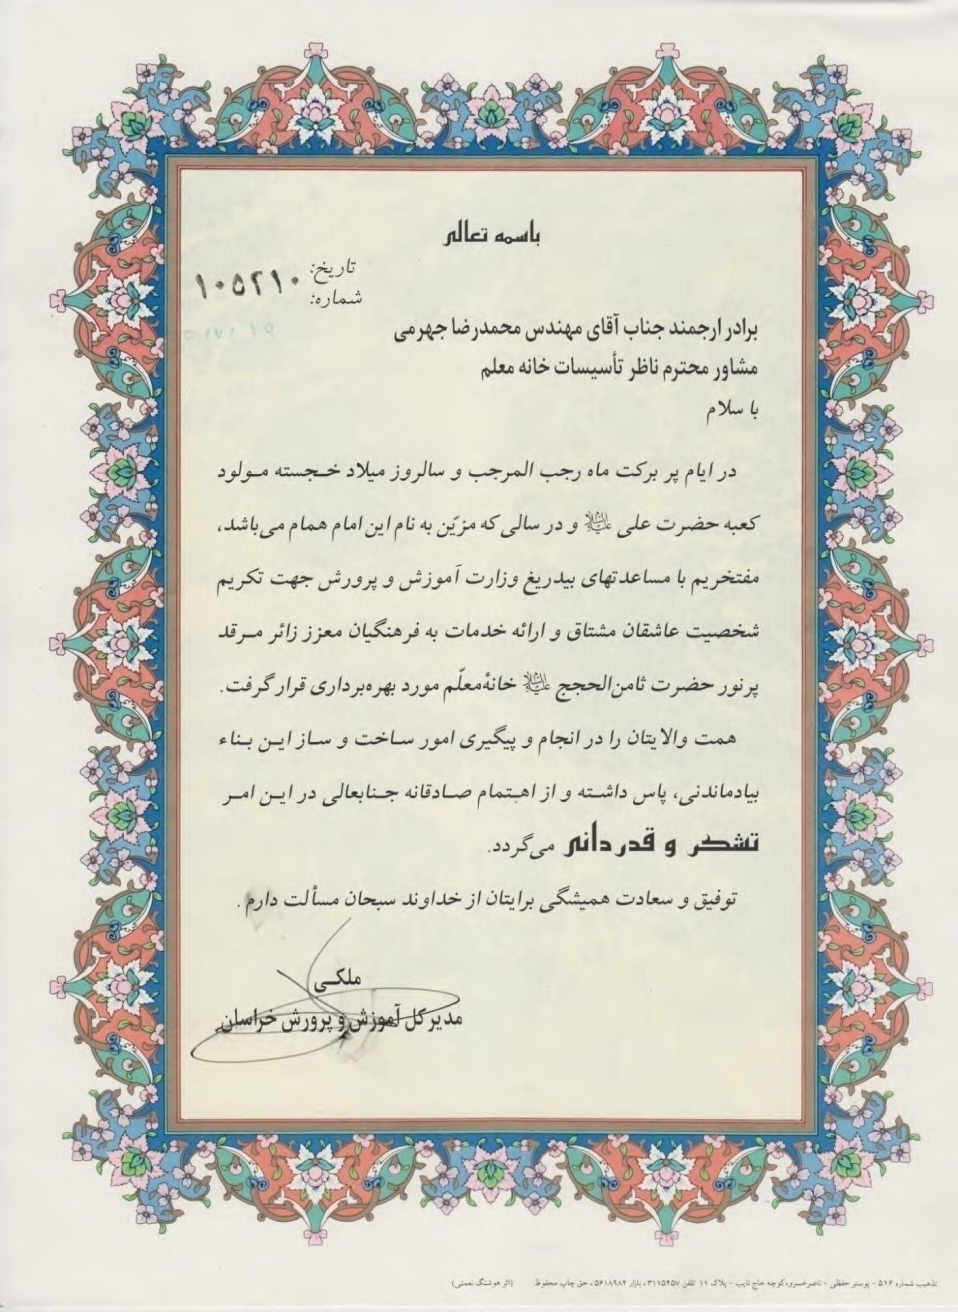 باسمه تعالی
تاریخ:
۱۰۵۲۱۰
شماره:
برادر ارجمند جناب آقای مهندس محمدرضا جهرمی
مشاور محترم ناظر تأسیسات خانه معلم
با سلام
در ایام پر برکت ماه رجب المرجب و سالروز میلاد خجسته مولود
کعبه حضرت علی علیه‌السلام و در سالی که مزیّن به نام این امام همام می‌باشد،
مفتخریم با مساعدتهای بیدریغ وزارت آموزش و پرورش جهت تکریم
شخصیت عاشقان مشتاق و ارائه خدمات به فرهنگیان معزز زائر مرقد
پرنور حضرت ثامن‌الحجج علیه‌السلام خانهٔ معلّم مورد بهره‌برداری قرار گرفت.
همت والایتان را در انجام و پیگیری امور ساخت و ساز این بناء
بیادماندنی، پاس داشته و از اهتمام صادقانه جنابعالی در این امر
تشکر و قدردانی می‌گردد.
توفیق و سعادت همیشگی برایتان از خداوند سبحان مسألت دارم.
ملکی
مدیر کل آموزش و پرورش خراسان
تذهیب شماره ۵۱۶ - پوستر حفظی - ناصرخسرو، کوچه حاج نایب - پلاک ۱۱ تلفن ۳۱۱۵۴۵۷، بازار ۵۶۱۸۹۸۴، حق چاپ محفوظ (اثر هوشنگ نعمتی)